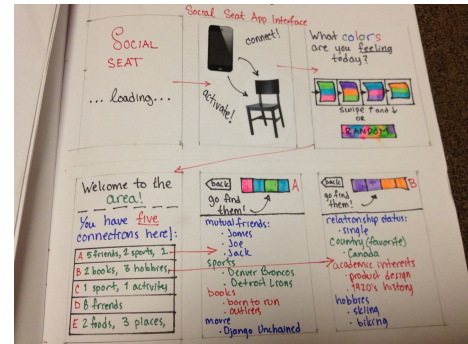 Social Seat App Interface
SOCIAL
SEAT
... loading...
connect!
activate!
What colors
are you feeling
today?
SWIPE ↑ and ↓
OR
RANDOM
Welcome to the
area!
You have five
connections here!:
A 5 friends, 2 sports, 1
B 2 books, 3 hobbies,
C 1 sport, 1 activity
D 8 friends
E 2 foods, 3 places,
back
A
go find
them!
mutual friends:
· James
· Joe
· Jack
sports
· Denver Broncos
· Detroit Lions
books
· born to run
· outliers
movie
· Django Unchained
back
B
go find
them!
relationship status:
· single
Country (favorite)
· Canada
academic interests
· product design
· 1920's history
hobbies
· skiing
· biking